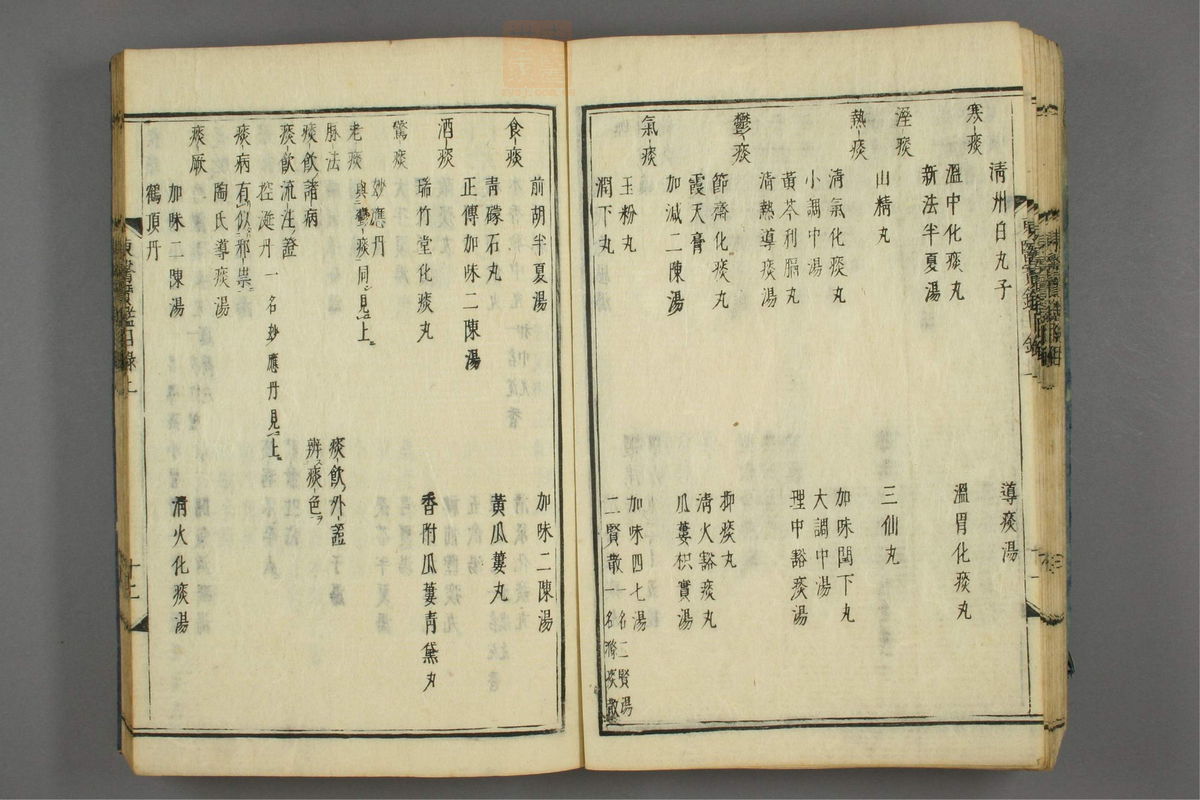 清州白丸子 導痰湯
寒痰
溫中化痰丸 溫胃化痰丸
新法半夏湯
溼痰
山精丸 三仙丸
熱痰
清氣化痰丸 加味閏下丸
小調中湯 大調中湯
黃芩利膈丸 理中豁痰湯
清熱導痰湯
鬱痰
節齋化痰丸 抑痰丸
霞天膏 清火豁痰丸
加減二陳湯 瓜蔞枳實湯
氣痰
玉粉丸 加味四七湯
潤下丸 二賢散一名二賢湯一名滌痰散
食痰
前胡半夏湯 加味二陳湯
青礞石丸 黃瓜蔞丸
正傳加味二陳湯
酒痰
瑞竹堂化痰丸 香附瓜蔞青黛丸
驚痰
妙應丹
老痰 與鬱痰同見上
脉法 痰飲外證
痰飲諸病 辨痰色
痰飲流注證
控涎丹一名妙應丹見上
痰病有似邪祟
陶氏導痰湯
痰厥
加味二陳湯 清火化痰湯
鶴頂丹
東醫寶鑑目錄上
十二